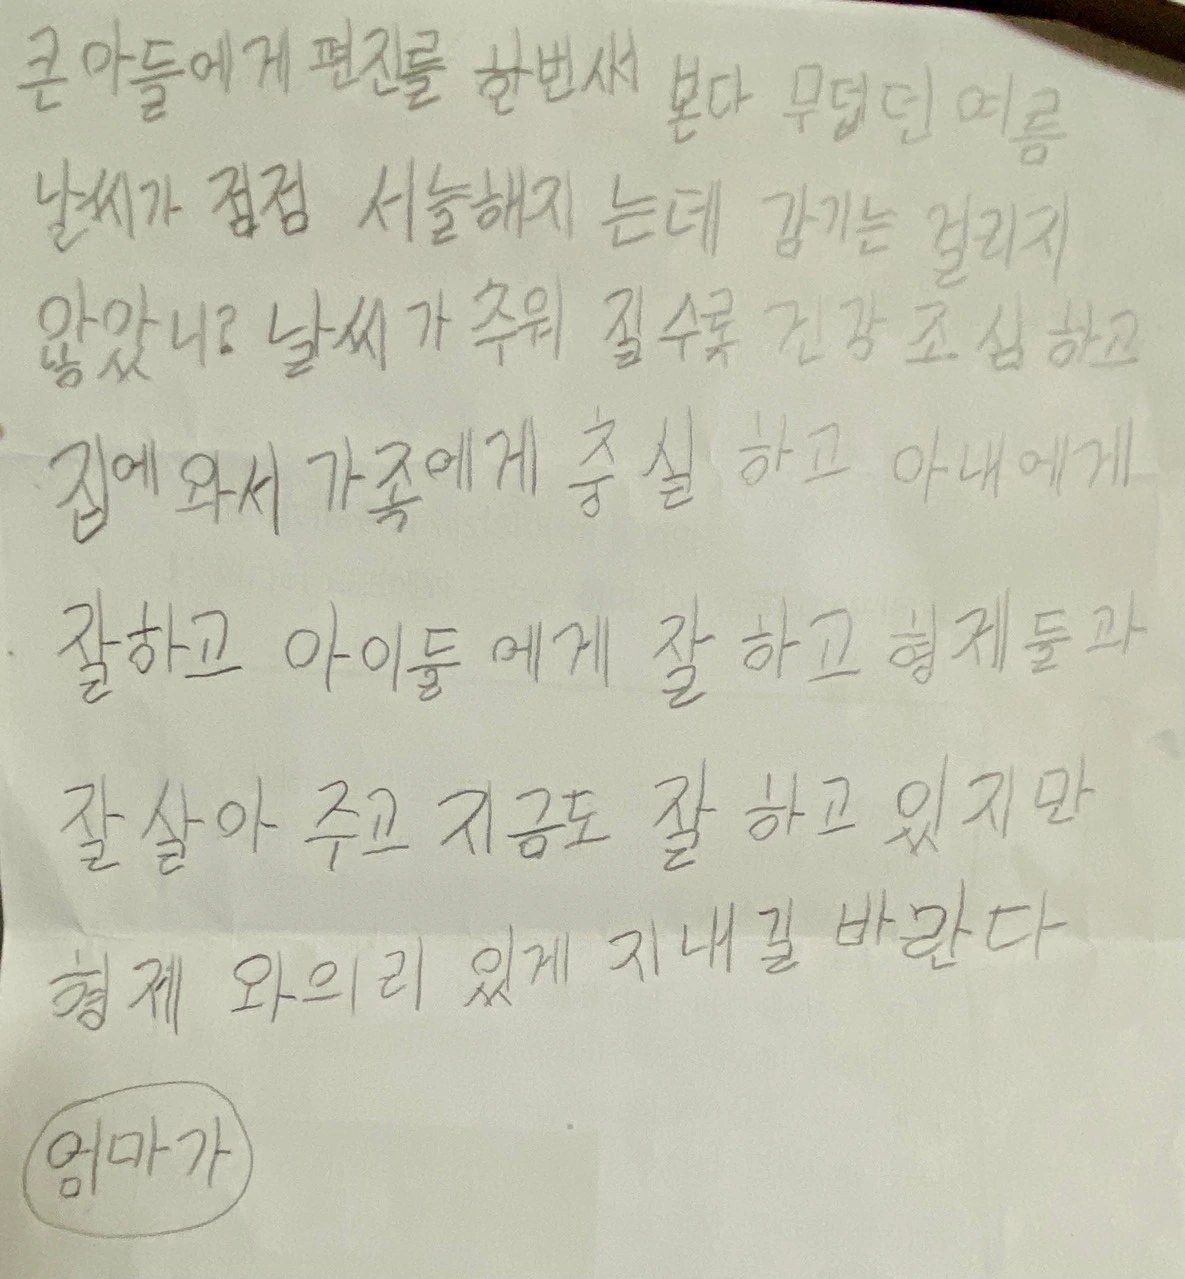 큰아들에게 편진를 한번써 본다 무덥던 여름
날씨가 점점 서늘해지 는데 감기는 걸리지
않았니? 날씨가 추워 질수롯 건강 조심하고
집에 와서 가족에게 충실 하고 아내에게
잘하고 아이들 에게 잘 하고 형제들과
잘 살아 주고 지금도 잘 하고 있지만
형제 와의리 있게 지내길 바란다
엄마가